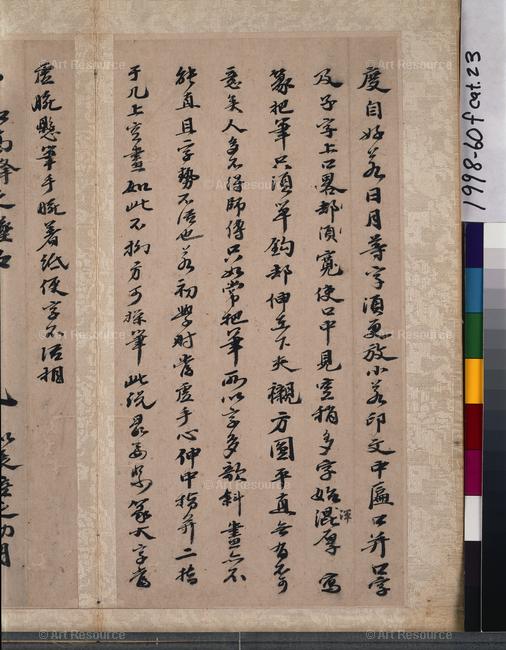 度自好若日月等字須更放小若印文中匾口并口字
及子字上口畧却須寬使口中見空稍多字始混厚寫
渾
篆把筆只須单鈎却伸在下夾襯方圓平直無有不可
意矣人多不得師傳只如常把筆所以字多欹斜畫亦不
能直且字勢不活也若初學时當虛手心伸中指并二指
于几上空畫如此不拗方可操筆此說最為要緊篆大字當
虛腕懸筆手腕着紙便字不活相
1998-60f cat.23
© Art Resource